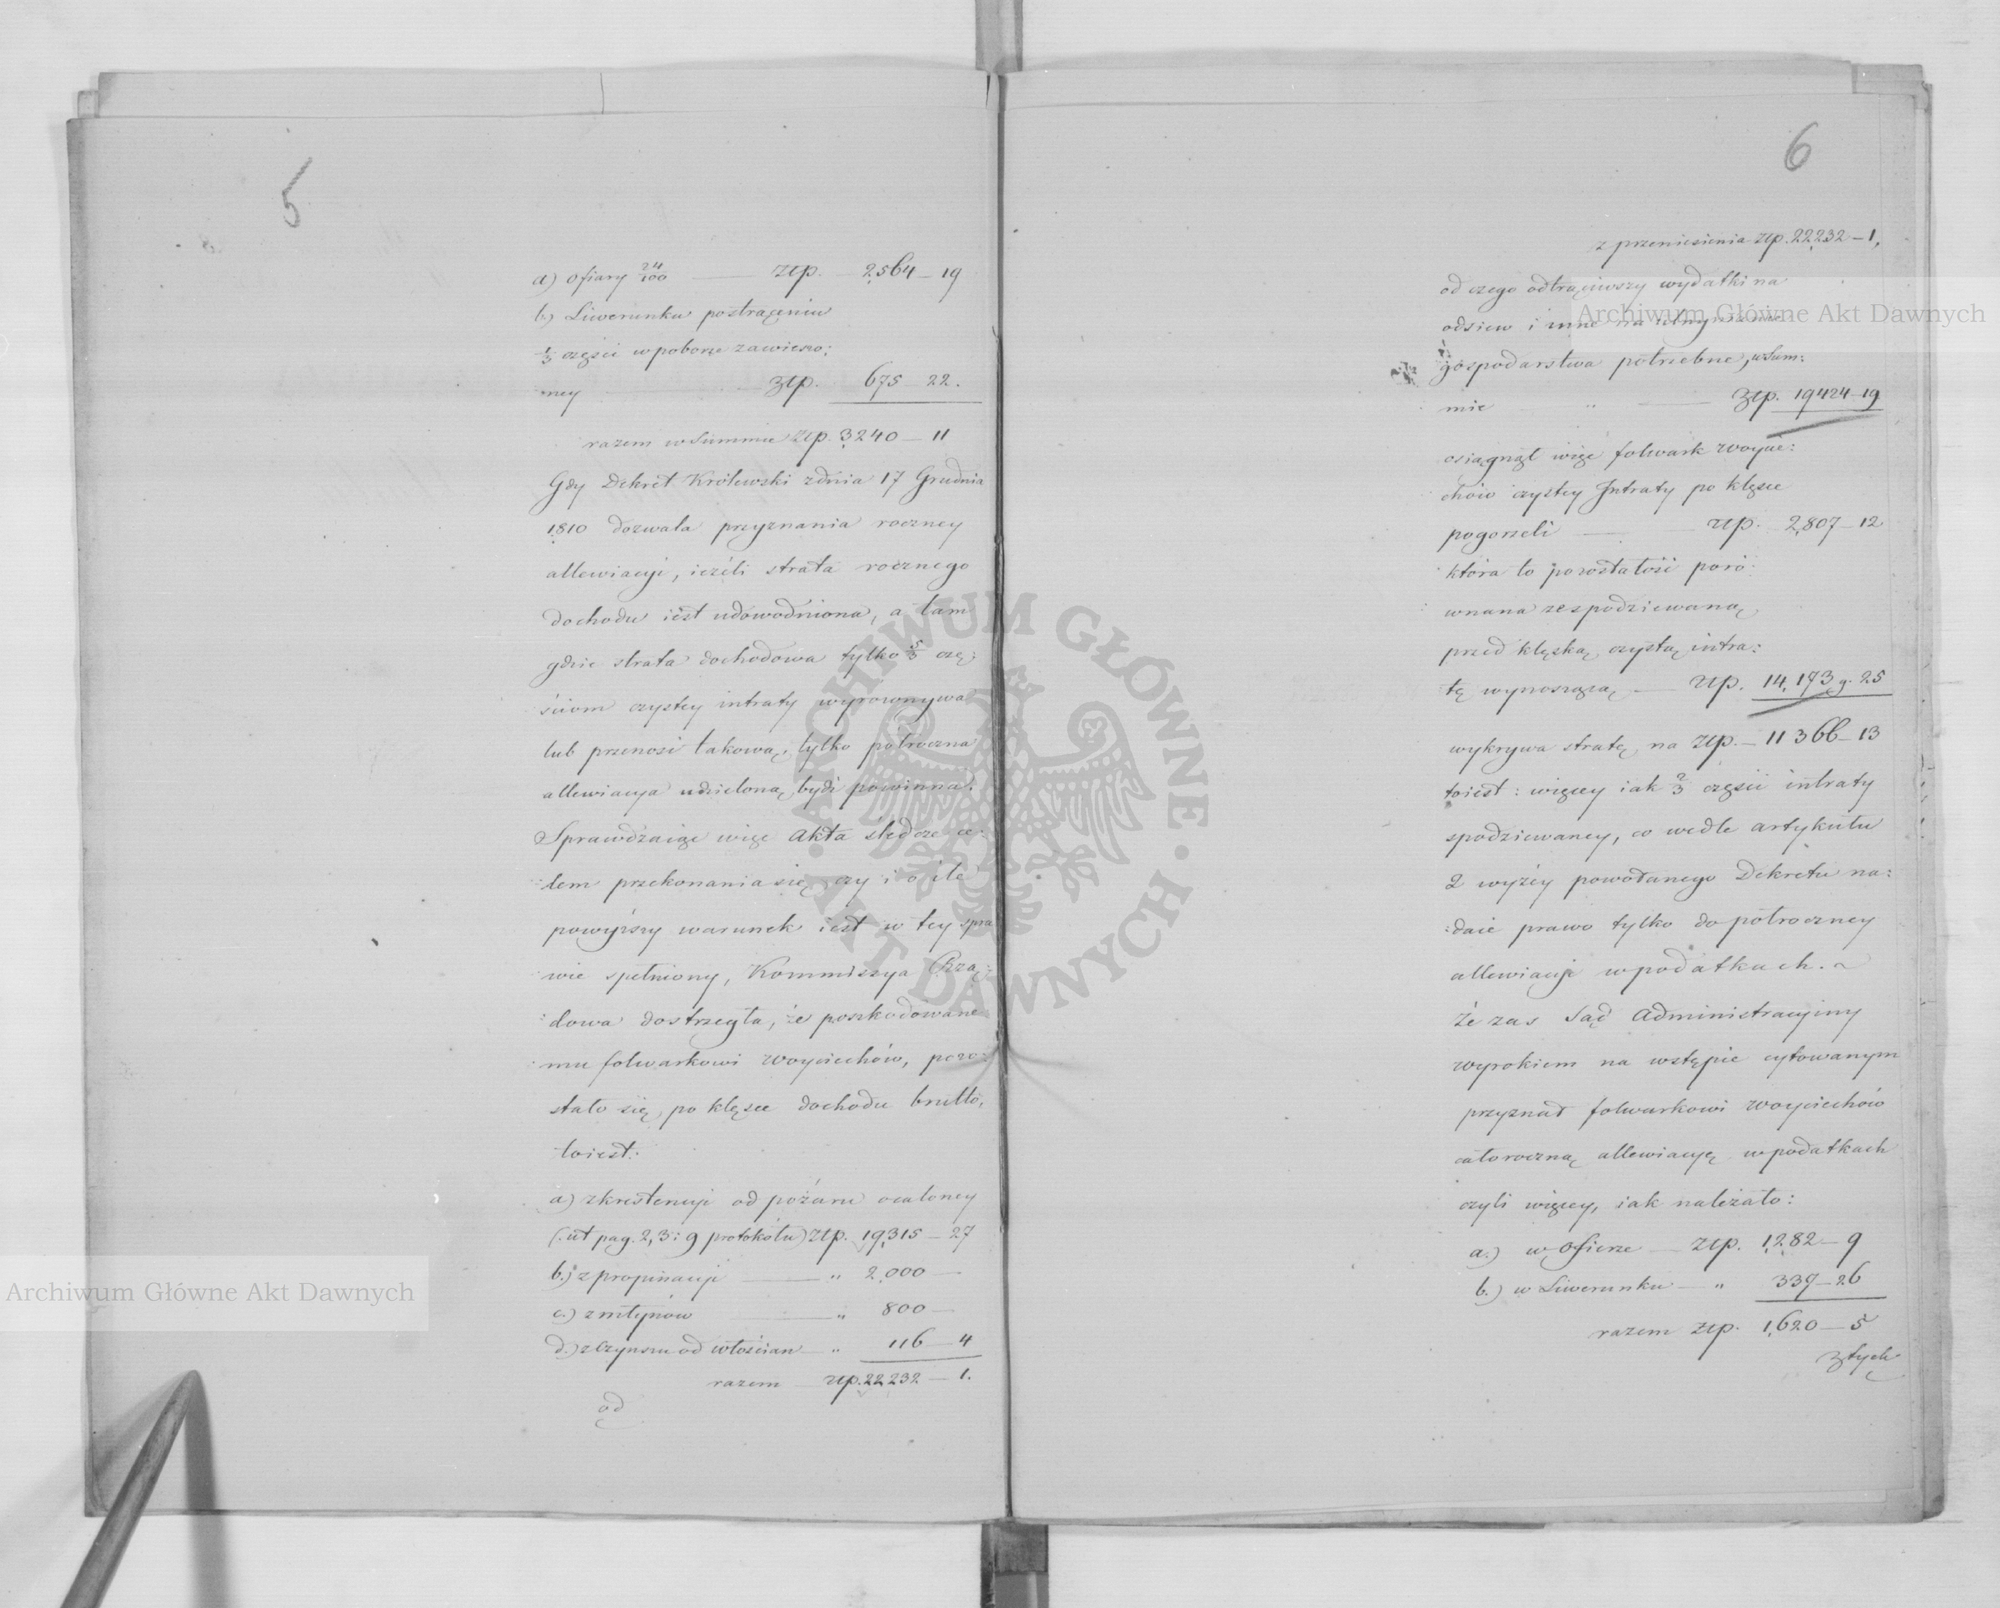 5
a) Ofiary 24/100 — Złp. — 2,564 — 19
b) Liwerunku po strąceniu
1/3 części w poborze zawieszo:
ney — Złp. 675 — 22.
razem w Summie Złp. 3,240 — 11
Gdy Dekret Królewski z dnia 17 Grudnia
1810 dozwala przyznania roczney
allewiacyi, ieżeli strata rocznego
dochodu iest udowodniona, a tam
gdzie strata dochodowa tylko 2/3 czę:
ściom czystey intraty wyrownywa
lub przenosi takową, tylko półroczna
allewiacya udzieloną bydź powinna.
Sprawdzaiąc więc Akta śledcze ce:
:lem przekonania się, czy i o ile
powyższy warunek iest w tey spra
wie spełniony, Kommissya Rzą:
:dowa dostrzegła, że poszkodowane
mu folwarkowi Woyciechów, pozo:
stało się po klęsce dochodu brutto,
toiest:
a) z krestencyi od pożaru ocaloney
(: ut pag. 2, 3 i 9 protokółu) Złp. 19,315 — 27
b.) z propinacyi — „ 2,000 —
c.) z młynów — „ 800 —
d.) z czynszu od włościan — „ 116 — 4
razem — Złp. 22,232 — 1.
od
6
z przeniesienia Złp. 22,232 — 1,
od czego odtrąciwszy wydatki na
odsiew i inne na
gospodarstwa potrzebne, w Sum:
mie — Złp. 19424 — 19
osiągnął więc folwark Woycie:
chów czystey Intraty po klęsce
pogorzeli — Złp. 2,807 — 12
która to pozostałość poró:
wnana ze spodziewaną
przed klęską czystą intra:
tą wynoszącą — Złp. 14,173 g. 25
wykrywa stratę na Złp. — 11 366 — 13
toiest: więcey iak 2/3 części intraty
spodziewaney, co wedle artykułu
2 wyżey powołanego Dekretu na:
:daie prawo tylko do półroczney
allewiacyi w podatkach. ~
Że zaś Sąd Administracyiny
wyrokiem na wstępie cytowanym
przyznał folwarkowi Woyciechów
całoroczną allewiacyę w podatkach
czyli więcey, iak należało:
a.) w Ofierze — Złp. 1,282 — 9
b.) w Liwerunku — „ 337 — 26
razem Złp. 1,620 — 5
z tych
Archiwum Główne Akt Dawnych
Archiwum Główne Akt Dawnych
ARCHIWUM GŁÓWNE · AKT DAWNYCH ·